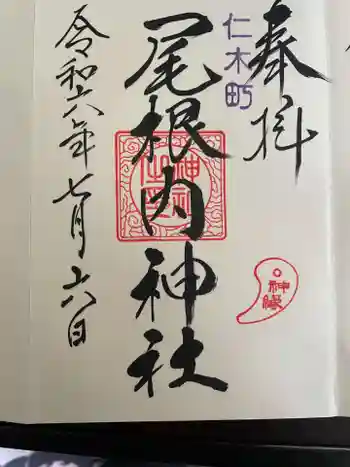 奉拝
仁木町
尾根内神社
令和六年七月六日
神縁